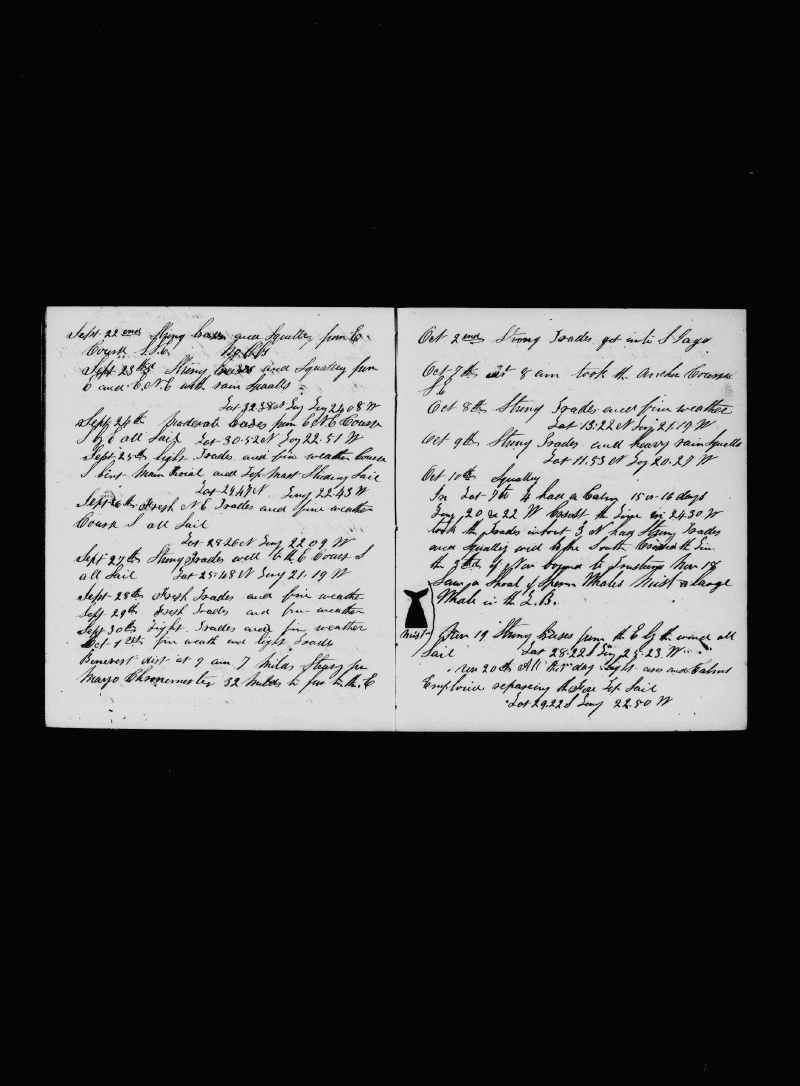 Sept 22 ond Strong and Squally from E
Course S.
Sept 23rd Strong and Squally from
E and E.N.E with rain Squalls
Lat 32.38 N Long 24 08 W
Sept 24th Moderate from E N E Course
S by E all Sail Lat 30.52 N Long 22.51 W
Sept 25th light Trades and fine weather Course
S Main Roial and Top Mast Studing Sail
Lat 29.47 N Long 22.43 W
Sept 26th Fresh N E Trades and fine weather
Course S all Sail
Lat 28 26 N Long 22 09 W
Sept 27th Strong Trades to the E Course S
all Sail Lat 25.48 N Long 21.19 W
Sept 28th Fresh Trades and fine weather
Sept 29th Fresh Trades and fine weather
Sept 30th Light Trades and fine weather
Oct 1 fine weath and light Trads
dist at 9 am 7 Miles
Mayo Chronometer 32 Miles to to the E
Oct 2 ond Strong Trades got into S Sago
Oct 7th at 8 am took the Anchor Course
S E
Oct 8th Strong Trades and fine weather
Lat 13.22 N Long 21.19 W
Oct 9th Strong Trades and heavy rain Squalls
Lat 11.53 N Long 20.27 W
Oct 10th Squally
In Lat 7 to 4 had a Calm 15 or 16 days
Long 20 & 22 W the Line in 24.30 W
took the Trades in 3 N had Strong Trades
and Squally to the South the Line
the 3rd of Nov bound to Nov 18
Saw a Shoal of Sperm Whales Mist a large
Whale in the L. B.
Mist
Nov 19 Strong from the E by the wind all
Sail Lat 28.22 S Long 23.23 W
Nov 20th All this day Light and Calms
Employed repareing the Fore Top Sail
Lat 29.22 S Long 22.50 W